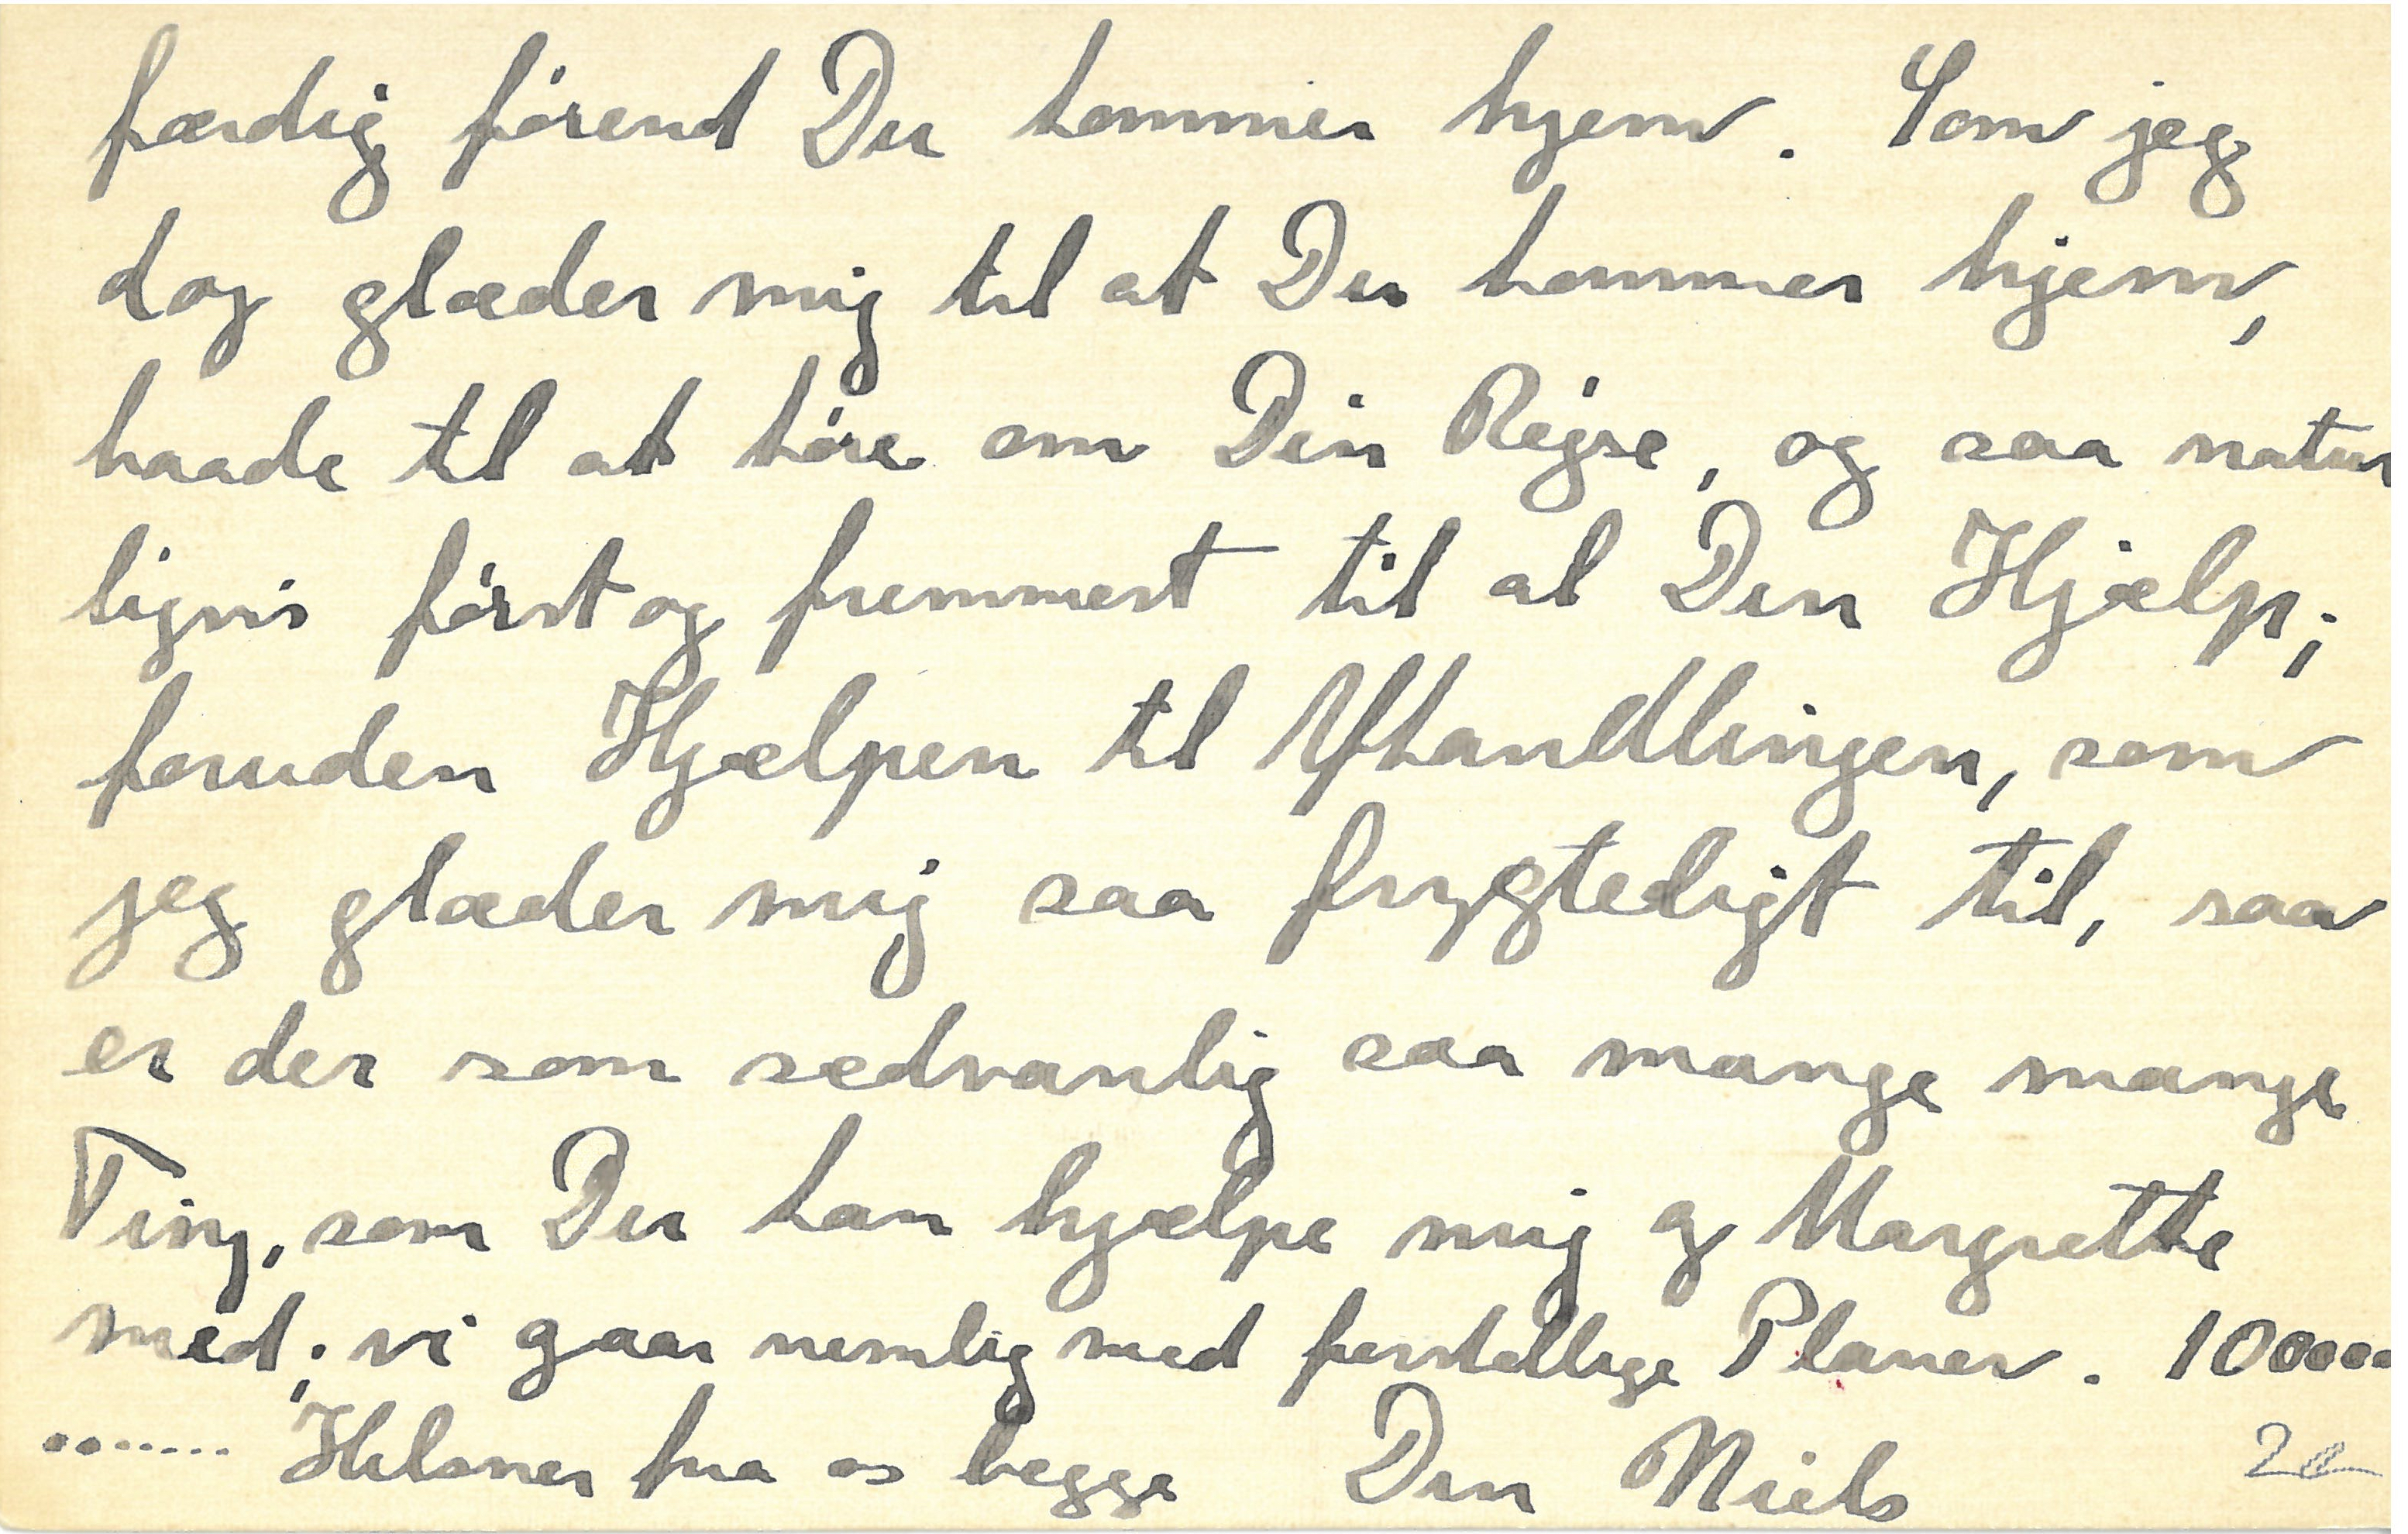 færdig førend Du kommer hjem. Som jeg
dog glæder mig til at Du kommer hjem,
baade til at høre om Din Rejse, og saa natur
ligvis først og fremmest til al Din Hjælp;
foruden Hjælpen til Afhandlingen, som
jeg glæder mig saa frygteligt til, saa
er der som sædvanlig saa mange mange
Ting, som Du kan hjælpe mig og Margrethe
med; vi gaar nemlig med forskellige Planer. 100000
....... Hilsner fra os begge Din Niels